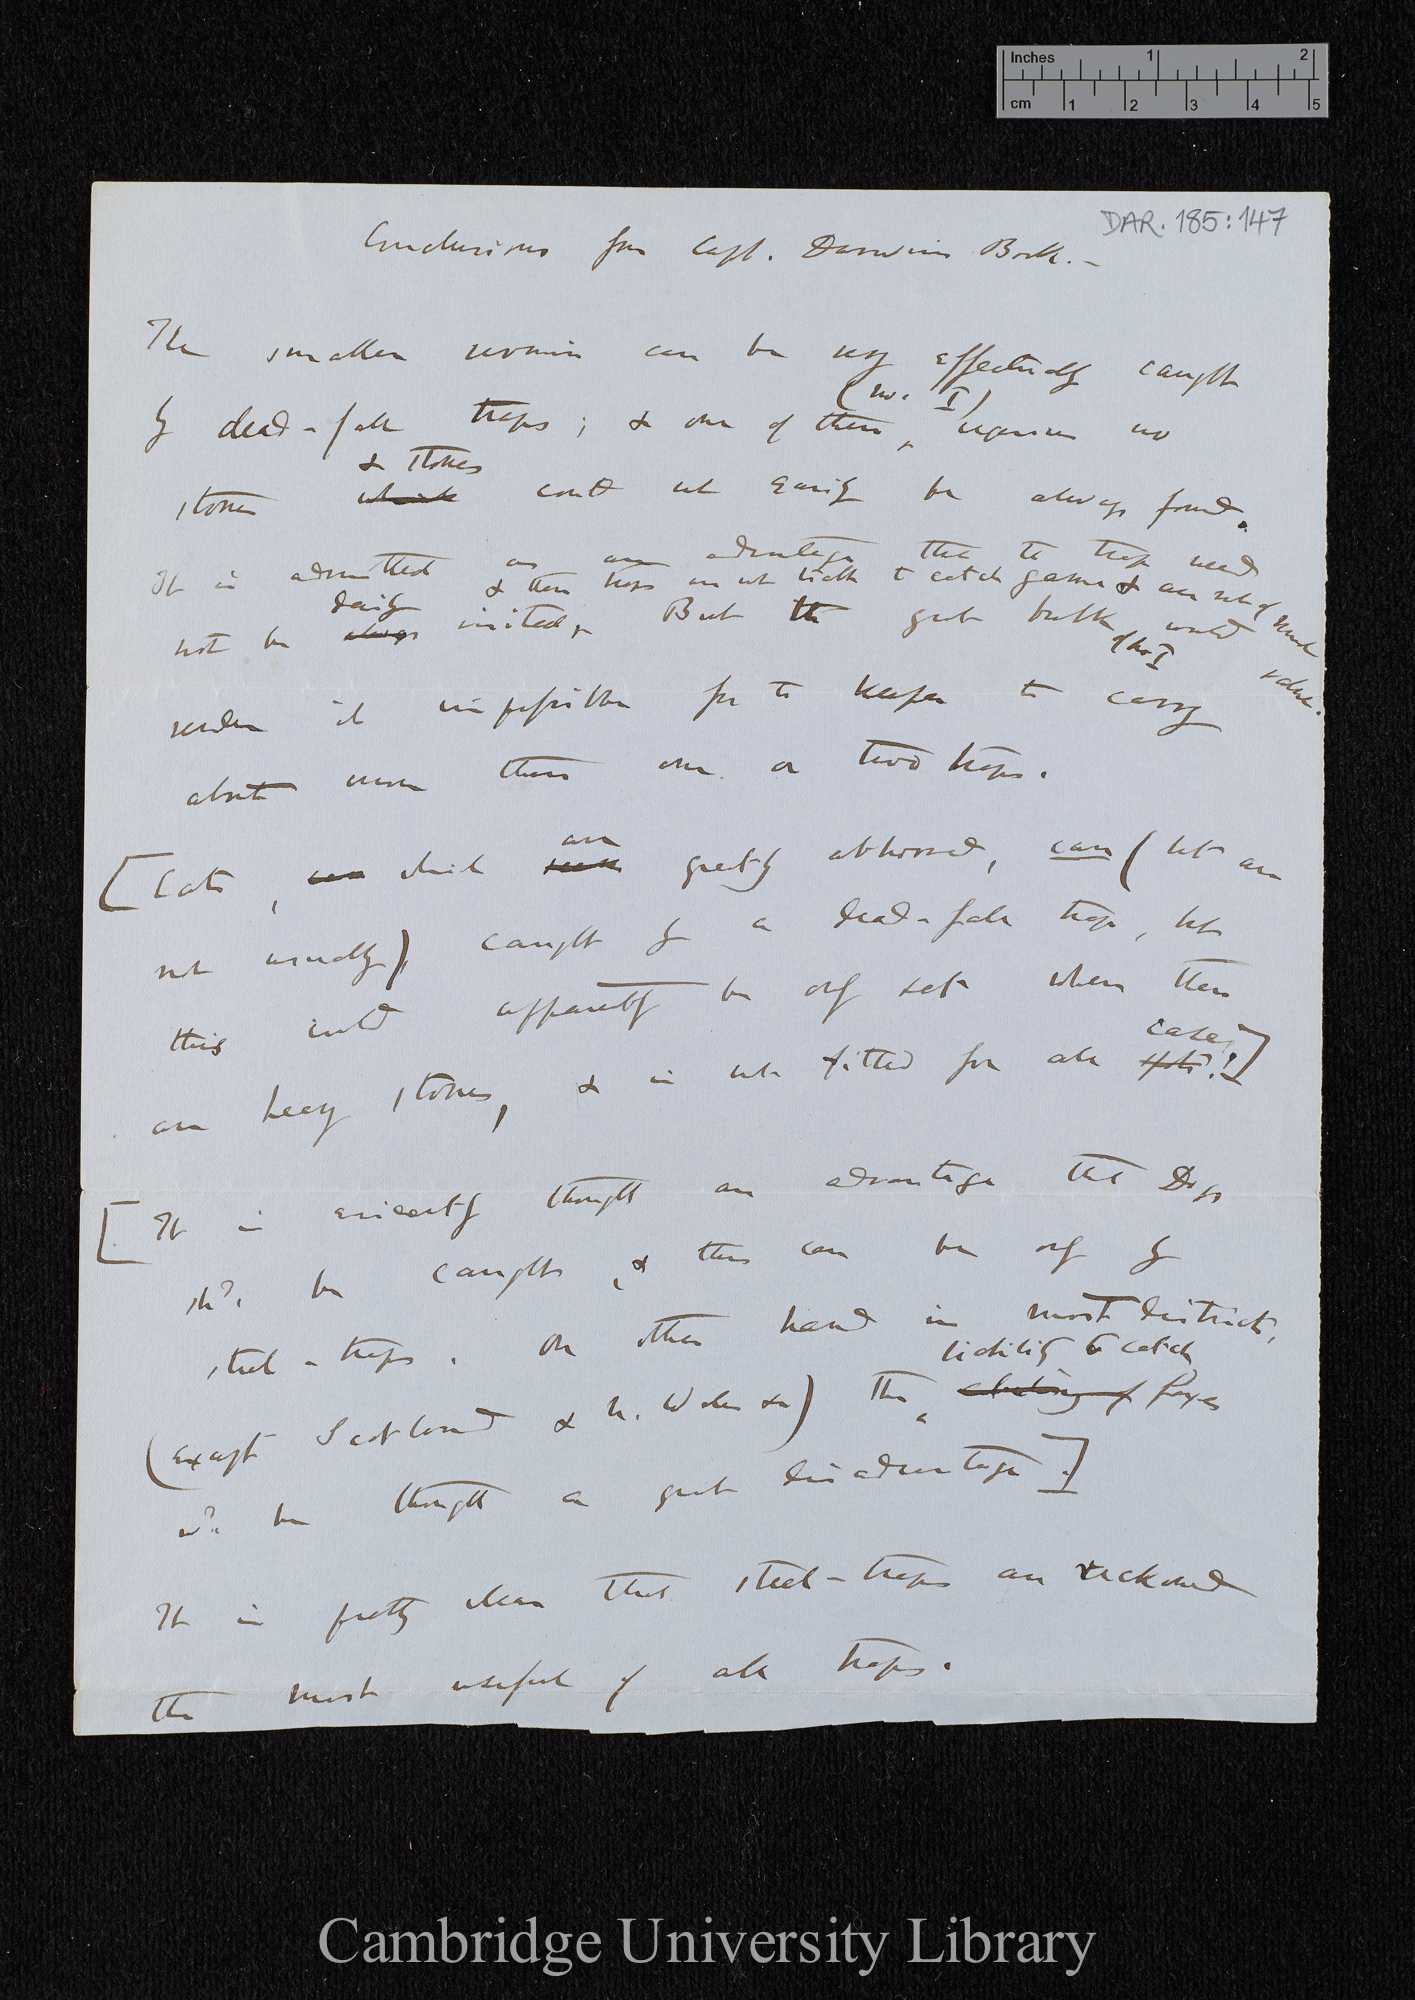 Inches 1 2
cm 1 2 3 4 5
DAR. 185:147
Conclusions from Capt. Darwin's Book.—
The smaller vermin can be very effectually caught
(no. I)
by dead-fall traps; & one of them, requires no
& stones
stones which could not easily be always found.
It is admitted as an advantage that the trap need
& these traps are not liable to catch game & are not of much value.
daily
not be always visited. But the great bulk would
of No I
render it impossible for the keeper to carry
about more than one or two traps.
are
[Cats, can which seem greatly abhorred, can (but are
not usually) caught by a dead-fall trap, but
this could apparently be only set where there
case!]
are heavy stones, & is not fitted for all spots!
[It is evidently thought an advantage that Dogs
shd. be caught, & this can be only by
steel-traps. On other hand in most districts,
liability to catch
(except Scotland & N. Wales &c) the catching of foxes
wd. be thought a great disadvantage.]
It is pretty clear that steel-traps are reckoned
the most useful of all traps.
Cambridge University Library